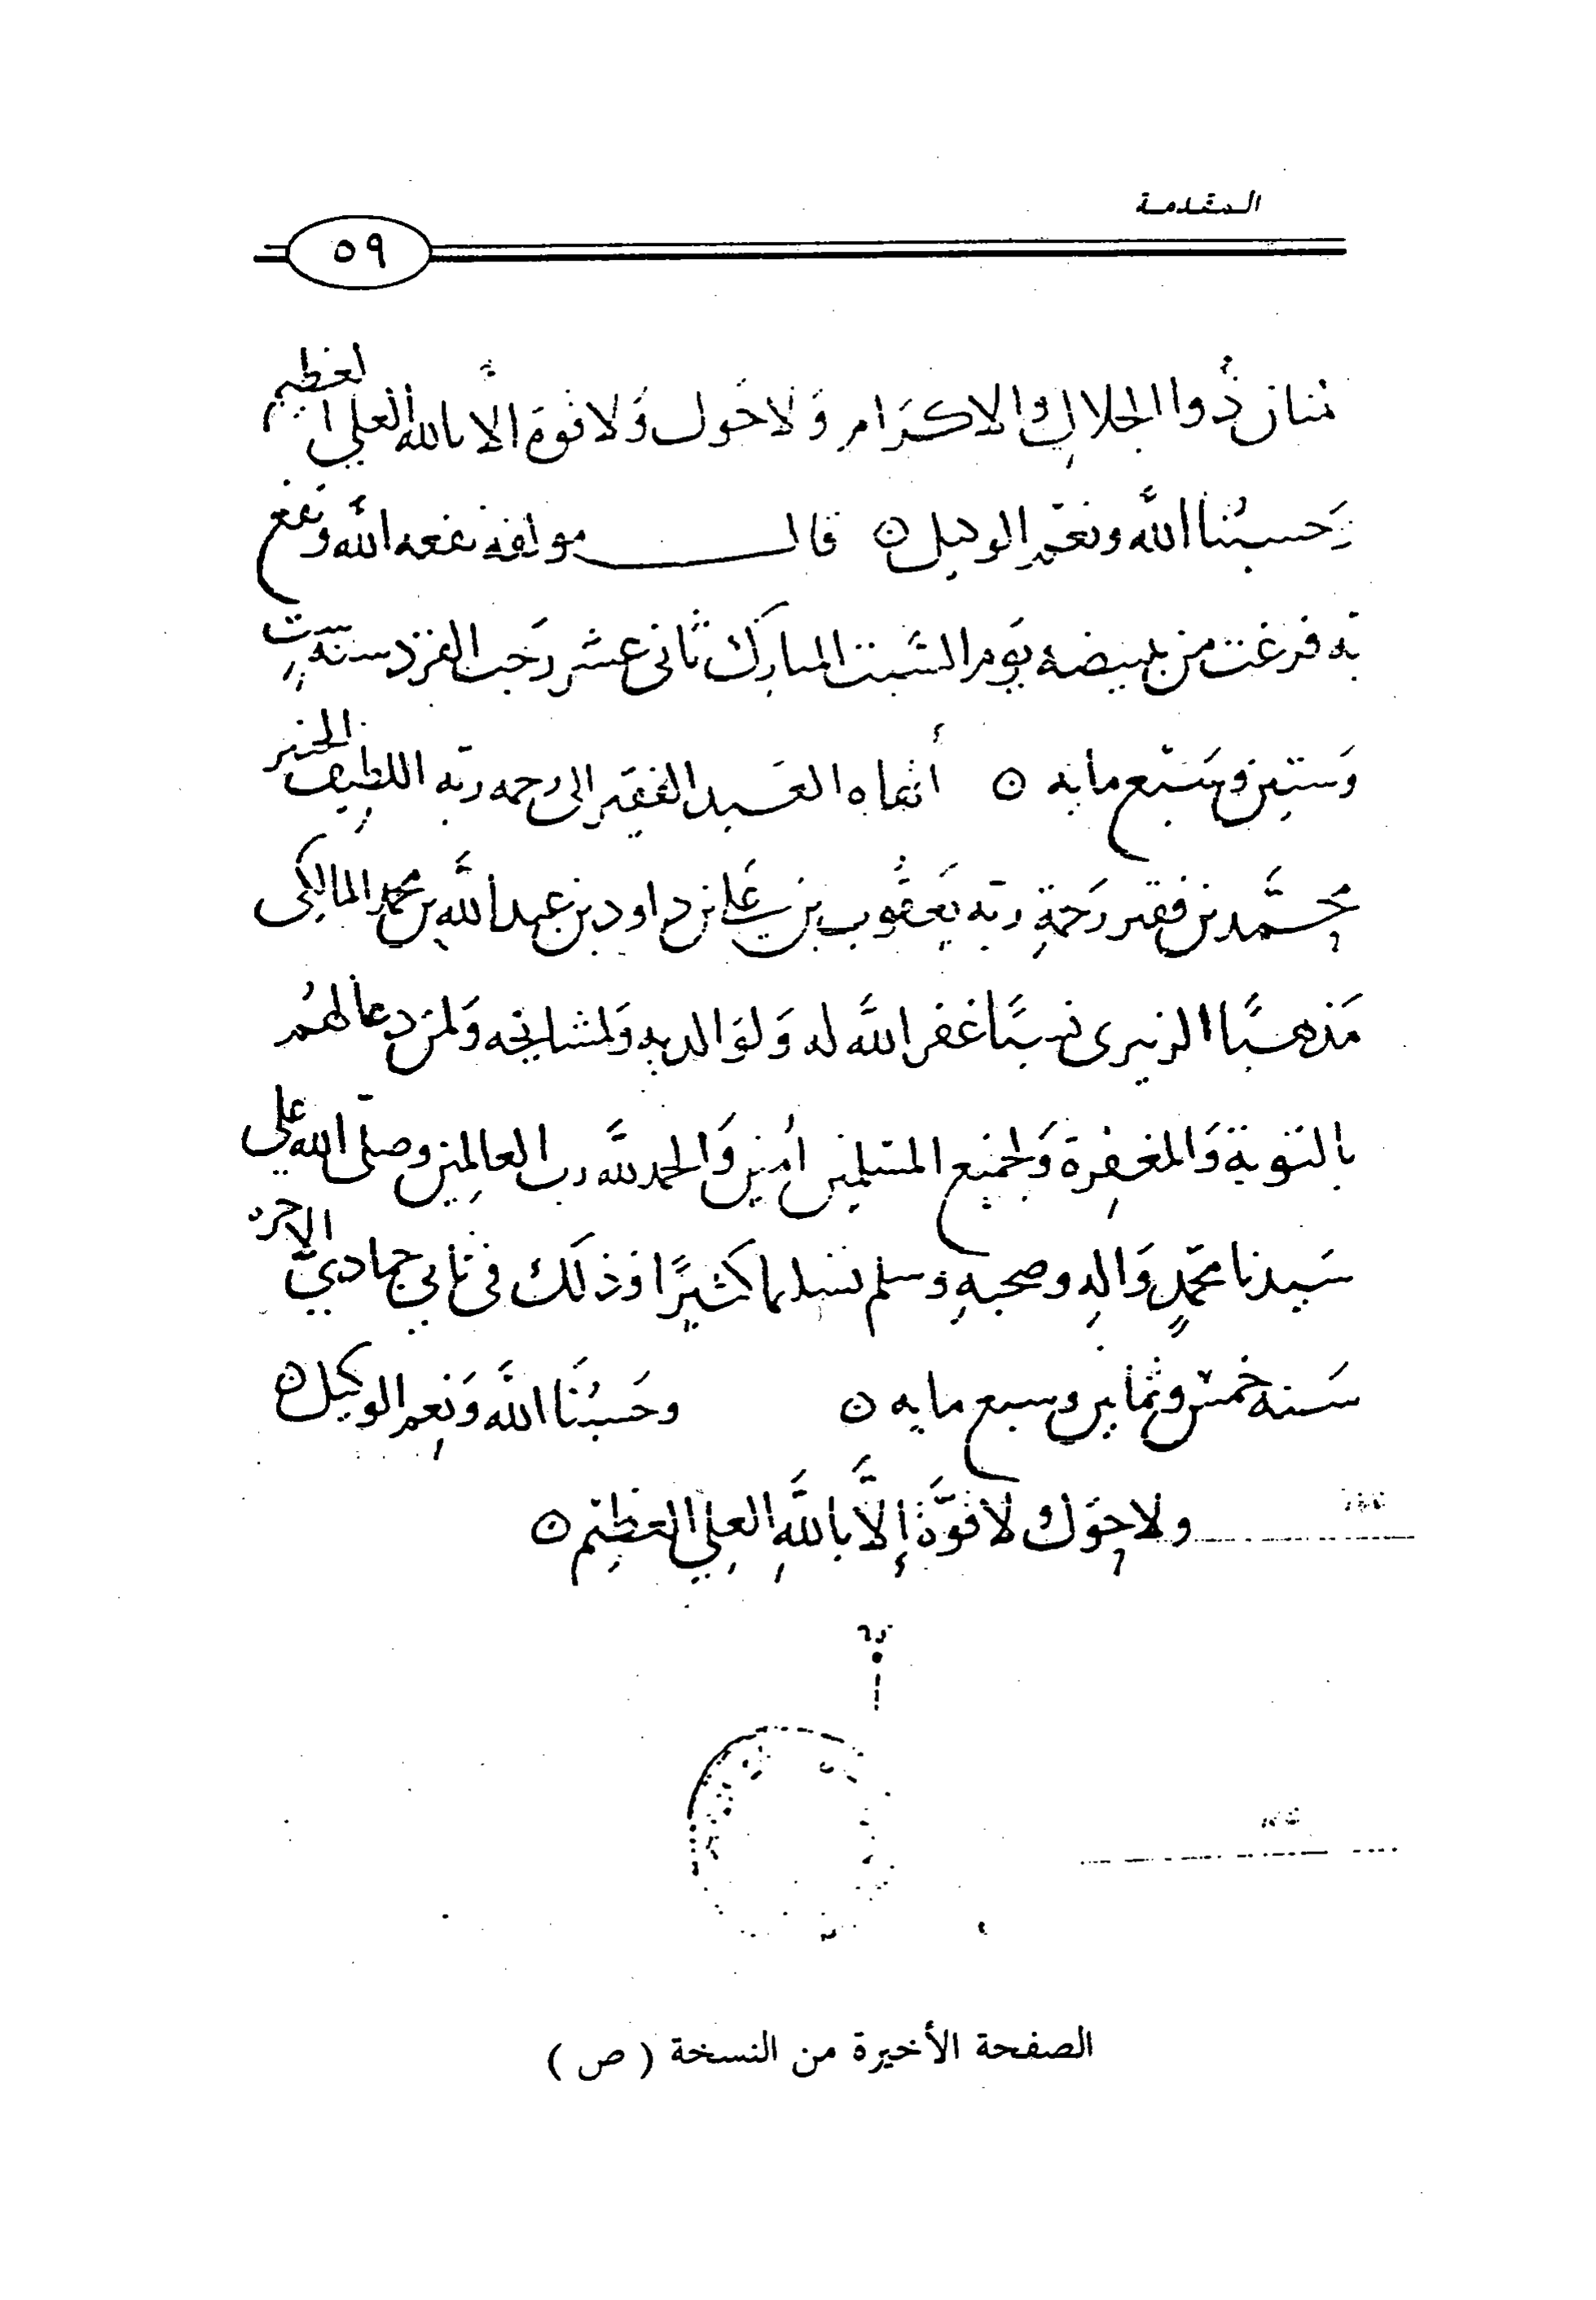 المقدمة
٥٩
منان ذوا الجلال والاكرام وَلاحَول وَلاقوة الا بالله العلي العظيم
وَحسبُنا الله ونعم الوكيل ٥ قال مولفه نفعه الله ونفع
به فرغت من تبييضه يَوم السَّبت المبارك ثانى عشر رَجب الفرد سنة ست
وَستين وسَبع مايه ٥ أنهاه العَبد الفقير الى رحمه ربه اللطيف الخبير
محَمَّد بن فقير رَحمةِ ربه يَعقُوب بن على بن داود بن عبد الله بن محمد المالكى
مَذهبًا الزبيرى نسَبًا غفر اللَّه له وَلوَالديه وَلمشايخه وَلمن دعا لهُم
بالتوبة وَالمغفِرة وَلجميع المسلمين اٰمين وَالحمد للَّه رب العالمِين وصلى الله على
سَيدنا محمّدٍ وَالِهِ وصحبهِ وسلم تسليما كثيرًا وذلَك فى ثانى جمادي الاخرة
سَنة خمس وثمانين وسبع مايه ٥ وحَسبُنَا اللَّه وَنِعم الوكيل ٥
ولاحَول ولاقوَّة إلَّا باللَّهِ العِلي العَظِيم ٥
الصفحة الأخيرة من النسخة ( ص )